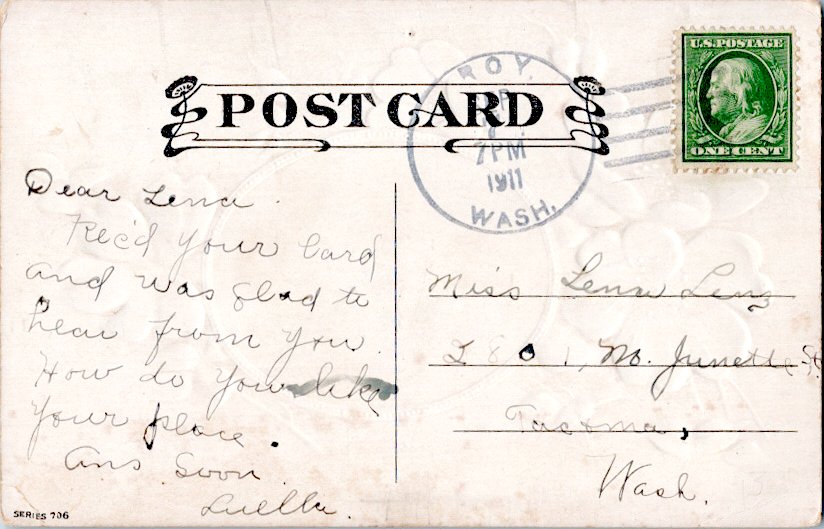 POST CARD
ROY
7 PM
1911
WASH.
U.S. POSTAGE
ONE CENT
Dear Lena.
Rec'd your card
and was glad to
hear from you.
How do you like
your place.
Ans. Soon.
Luella.
Miss Lena Lenz
2801, No. Junette St
Tacoma,
Wash.
SERIES 706